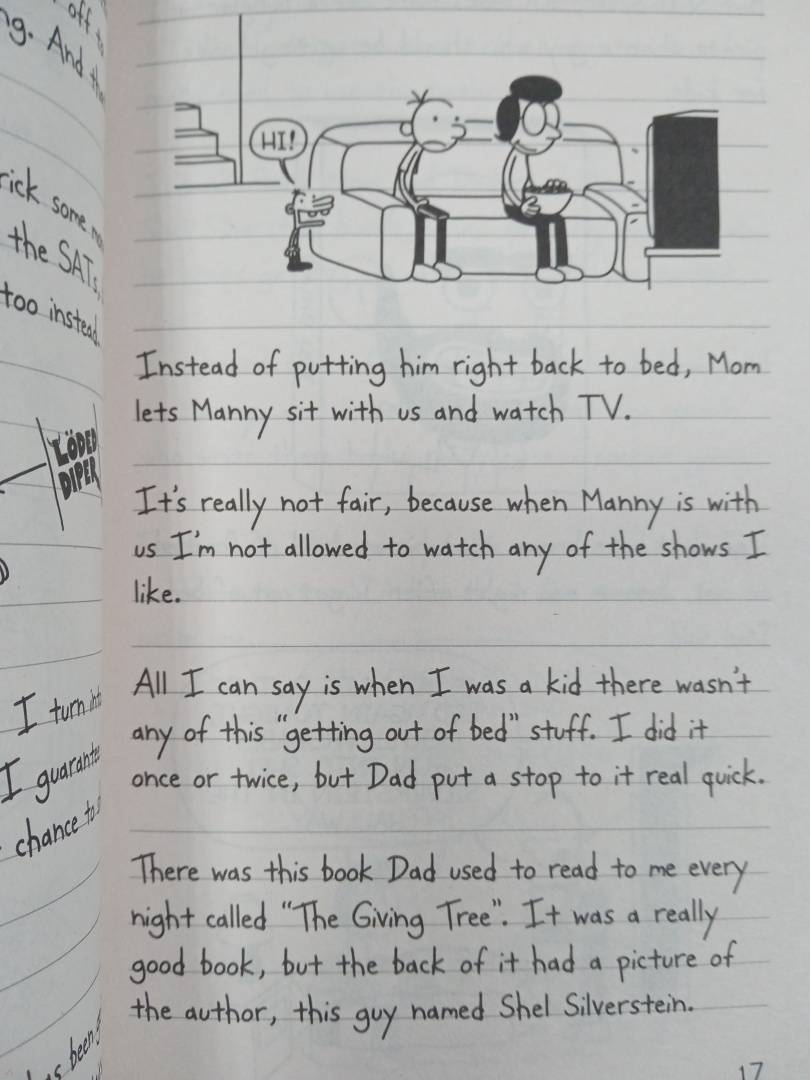 off
ng. And
rick some
the SATs,
too instead.
LÖDED
DIPER
I turn
I guarantee
chance to
been
HI!
Instead of putting him right back to bed, Mom
lets Manny sit with us and watch TV.
It's really not fair, because when Manny is with
us I'm not allowed to watch any of the shows I
like.
All I can say is when I was a kid there wasn't
any of this "getting out of bed" stuff. I did it
once or twice, but Dad put a stop to it real quick.
There was this book Dad used to read to me every
night called "The Giving Tree". It was a really
good book, but the back of it had a picture of
the author, this guy named Shel Silverstein.
17